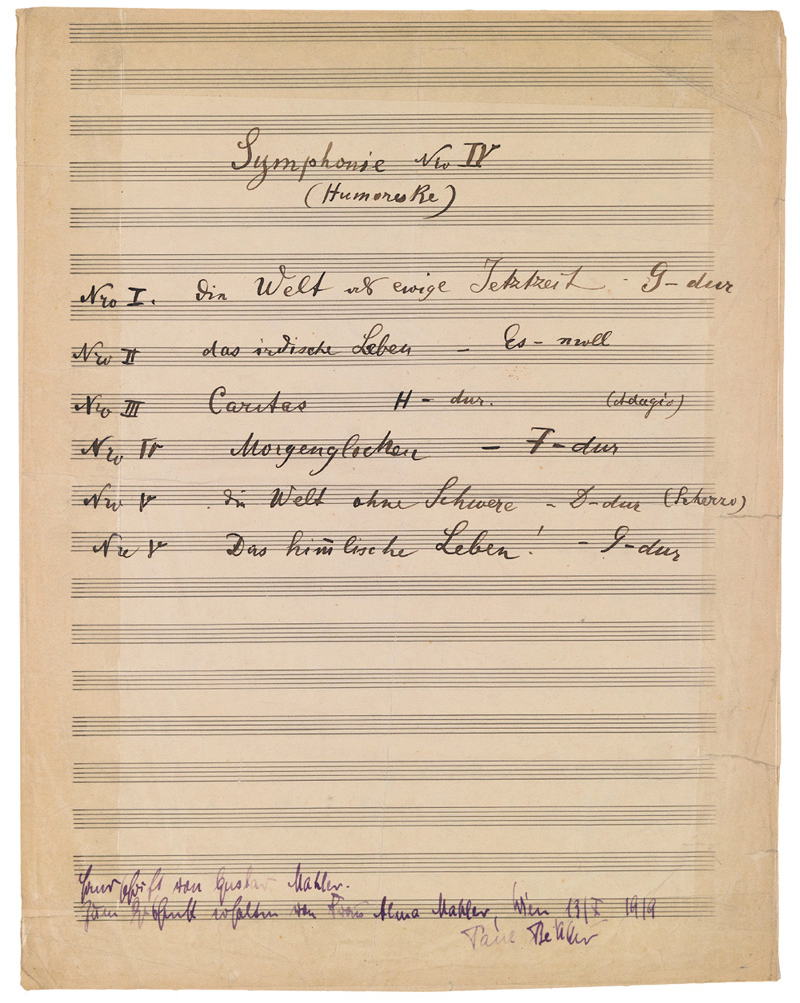 Symphonie Nro IV
(Humoreske)
Nro I. die Welt als ewige Jetztzeit - G-dur
Nro II das irdische Leben - Es-moll
Nro III Caritas H-dur. (Adagio)
Nro IV Morgenglocken - F-dur
Nro V die Welt ohne Schwere - D-dur (Scherzo)
Nro V Das him̅lische Leben! - G-dur
Handschrift von Gustav Mahler.
Zum Geschenk erhalten von Frau Alma Mahler, Wien 13/X 1919
Paul Bekker